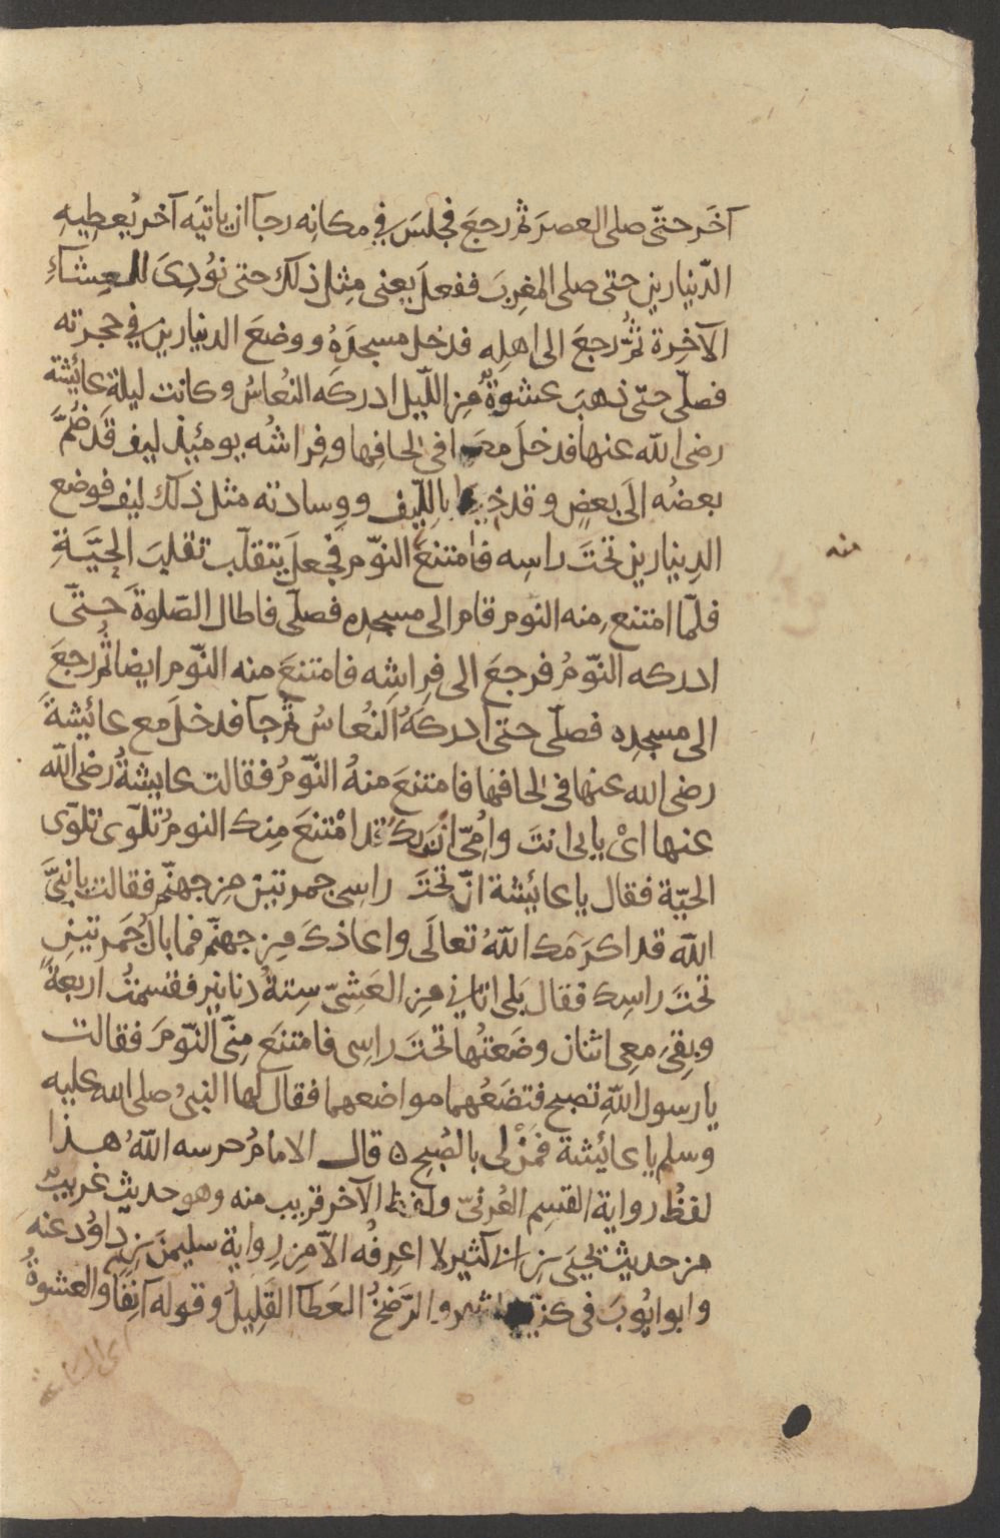 آخَر حتّى صلى العصرَ ثم رجعَ فجلسَ في مكانِه رجآ ان ياتيَه آخر يُعطِيهِ
الدّنيارين حتى صلى المغرِبَ ففعلَ يعنى مِثل ذلك حتى نوُدِىَ للعِشآءِ
الآخِرة ثُمّ رجعَ الى اهلِه فدخل مسجدَهُ ووضعَ الدنيارين في حجرته
فصلّى حتّى ذهبَ عشوةٌ مِن اللّيل ادركَه النُعاسُ وكانت ليلة عائِشة
رضى الله عنها فدخلَ معها في لحافِها وفِراشُه يومئِذٍ ليف قَد ضُمَّ
بعضُه الَى بعضٍ وقد بالِلّيف ووِسادته مثل ذلك ليف فوضع
الدِنيارين تحتَ راسِه فامتنعَ النوّم فجعلَ يتقلّب تقليبَ الحَيَّةِ
منه
فلّما امتنع منه النوم قام الى مسجدِه فصلّى فاطال الصّلوةَ حتىّ
ادركه النّومُ فرجعَ الى فِراشِه فامتنعَ منه النّوم ايضا ثُم رجعَ
الى مسجدِه فصلّى حتى ادركَهُ النُعاسُ ثُم جآ فدخلَ مع عائِشةَ
رضى الله عنها فى لحافها فامتنعَ منهُ النّومُ فقالت عايشةُ رضى الله
عنها اىْ بابى انتَ واُمّى قد امْتنعَ مِنك النومُ تلَوّى تلَوّى
الحيّة فقال يا عائِشة انّ تحتَ راسى جمرتين مِن جهنّم فقالت يا نبىَّ
الله قد اكرَمَك اللّهُ تعالَى واعاذكَ مِن جهنّم فما بالُ جَمرتينِ
تحتَ راسِك فقال بَلى اتانى مِن العَشِىّ سِتةُ دنانير فقسمتُ اربعةً
وبقِىَ معِى اثنان وضَعتُها تحتَ راسِى فامتنعَ مِنّى النّومَ فقالت
يا رسول اللّهِ تصبح فتضَعُهما مواضعهما فقال لها النبىُ صلى الله عليه
وسلم يا عائِشة فمَنْ لى بالصُبح ه قال الامامُ حرسه اللّهُ هذا
لفظُ رواية القسِم العُرنىّ ولفظ الآخر قريب منه وهو حديث غريبٌ
من حديث يحيَى بن ابى كثير لا اعرِفُه الّا مِن رِواية سليمنَ بن داوُد عنه
وابو ايُوبَ فى والرَضخُ العَطآ القَلِيلُ وقوله آنِفًا والعشوةُ